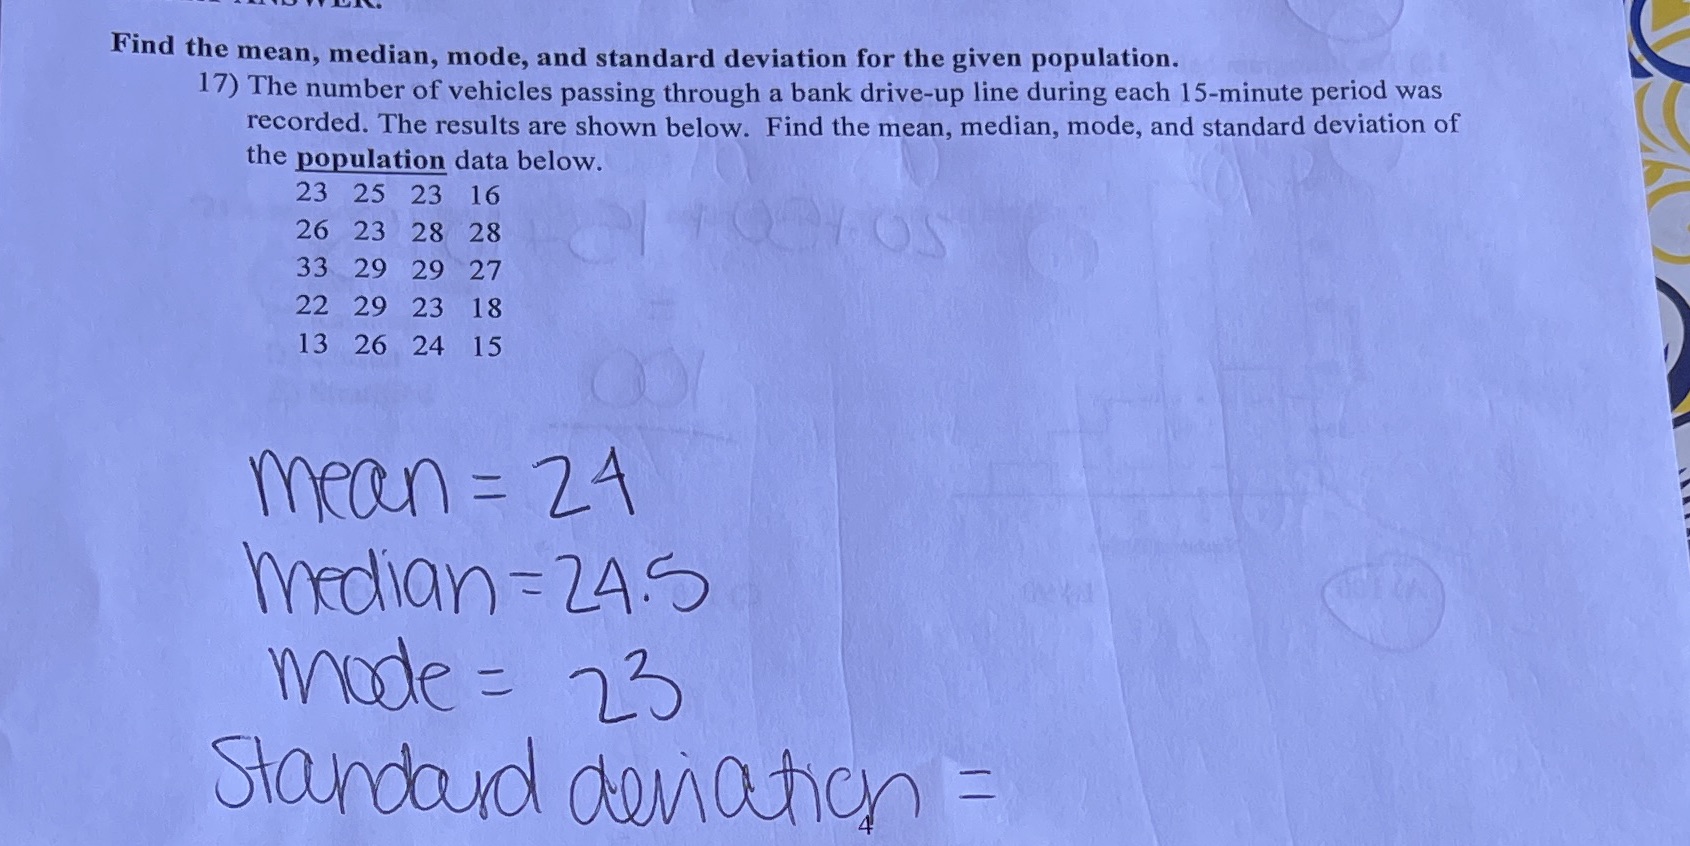 ANSWER.
Find the mean, median, mode, and standard deviation for the given population.
17) The number of vehicles passing through a bank drive-up line during each 15-minute period was
recorded. The results are shown below. Find the mean, median, mode, and standard deviation of
the population data below.
23 25 23 16
26 23 28 28
33 29 29 27
22 29 23 18
13 26 24 15
mean = 24
median = 24.5
mode = 23
Standard deviation =
4